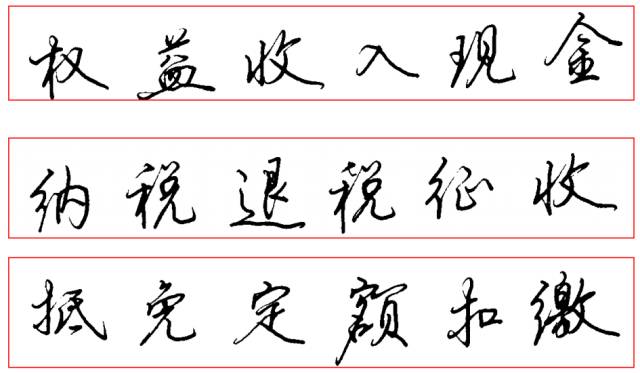 权益收入现金
纳税退税征收
抵免定额扣缴